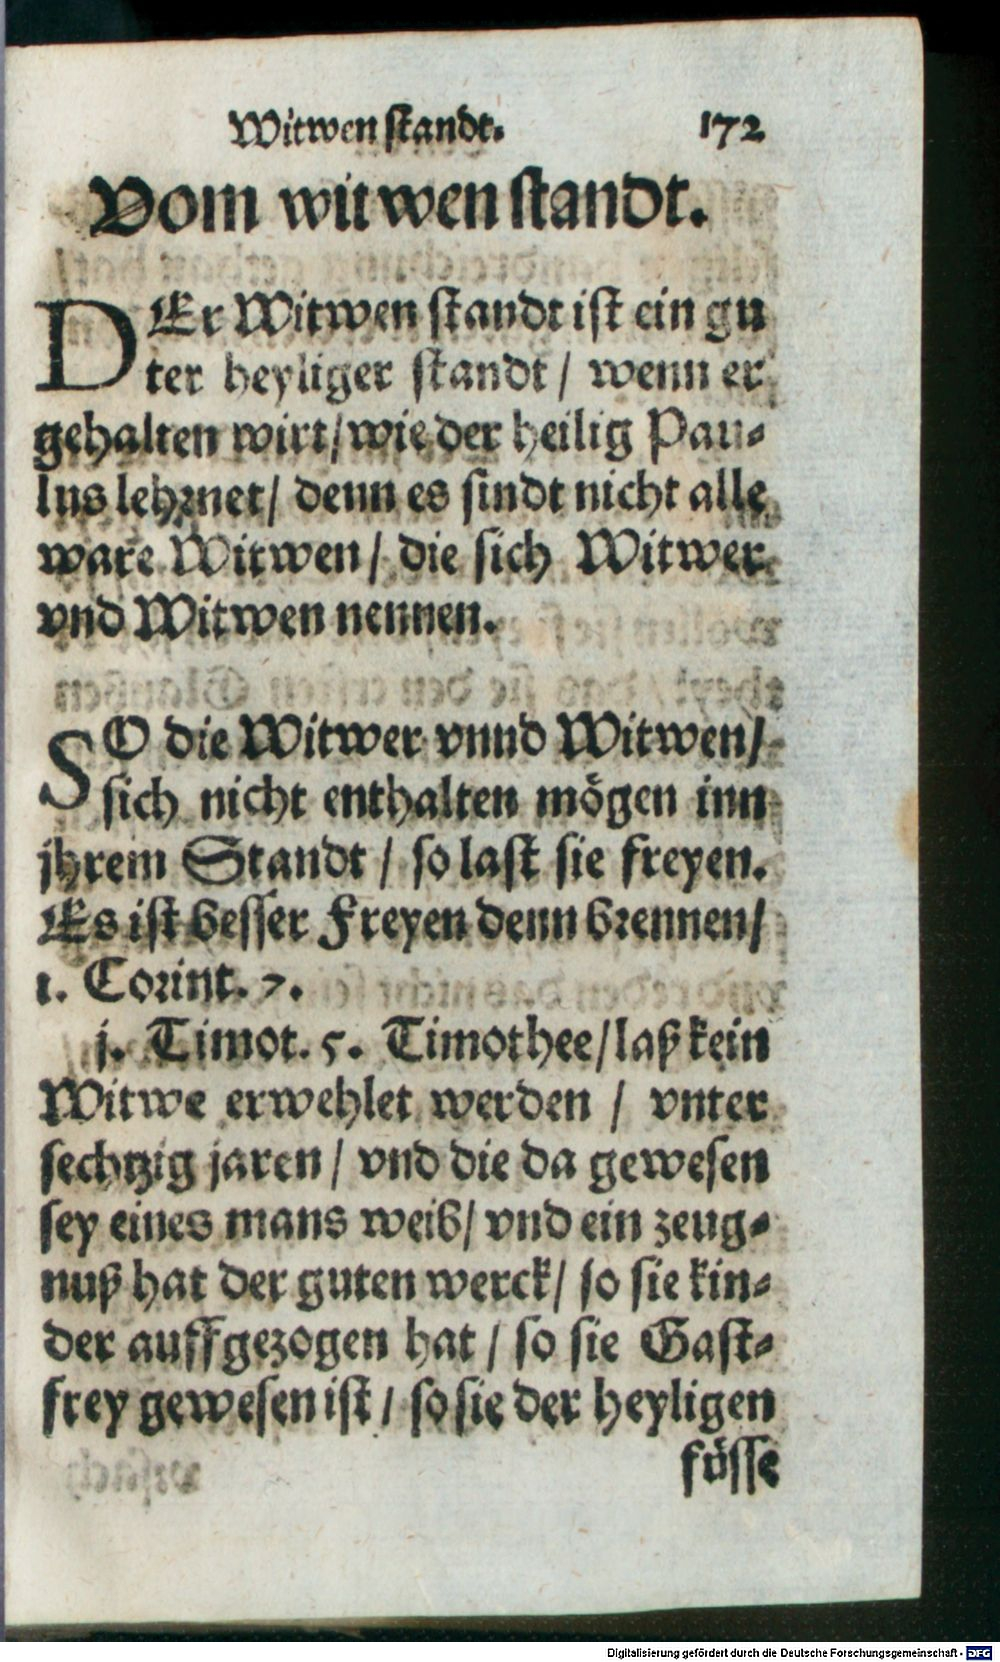 Witwen standt. 172
Vom witwen standt.
DEr Witwen standt ist ein gu
ter heyliger standt / wenn er
gehalten wirt / wie der heilig Pau-
lus lehrnet / denn es sindt nicht alle
ware Witwen / die sich Witwer
vnd Witwen nennen.
SO die Witwer vnnd Witwen /
sich nicht enthalten mögen inn
jhrem Standt / so last sie freyen.
Es ist besser Freyen denn brennen /
1. Corint. 7.
j. Timot. 5. Timothee / laß kein
Witwe erwehlet werden / vnter
sechtzig jaren / vnd die da gewesen
sey eines mans weib / vnd ein zeug-
nuß hat der guten werck / so sie kin-
der auffgezogen hat / so sie Gast-
frey gewesen ist / so sie der heyligen
füsse
Digitalisierung gefördert durch die Deutsche Forschungsgemeinschaft - DFG